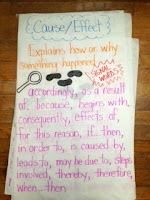 {Cause/Effect}
Explains how or why
something happened
SIGNAL WORDS
accordingly, as a result
of, because, begins with,
consequently, effects of,
for this reason, if...then,
in order to, is caused by,
leads to, may be due to, steps
involved, thereby, therefore,
when...then